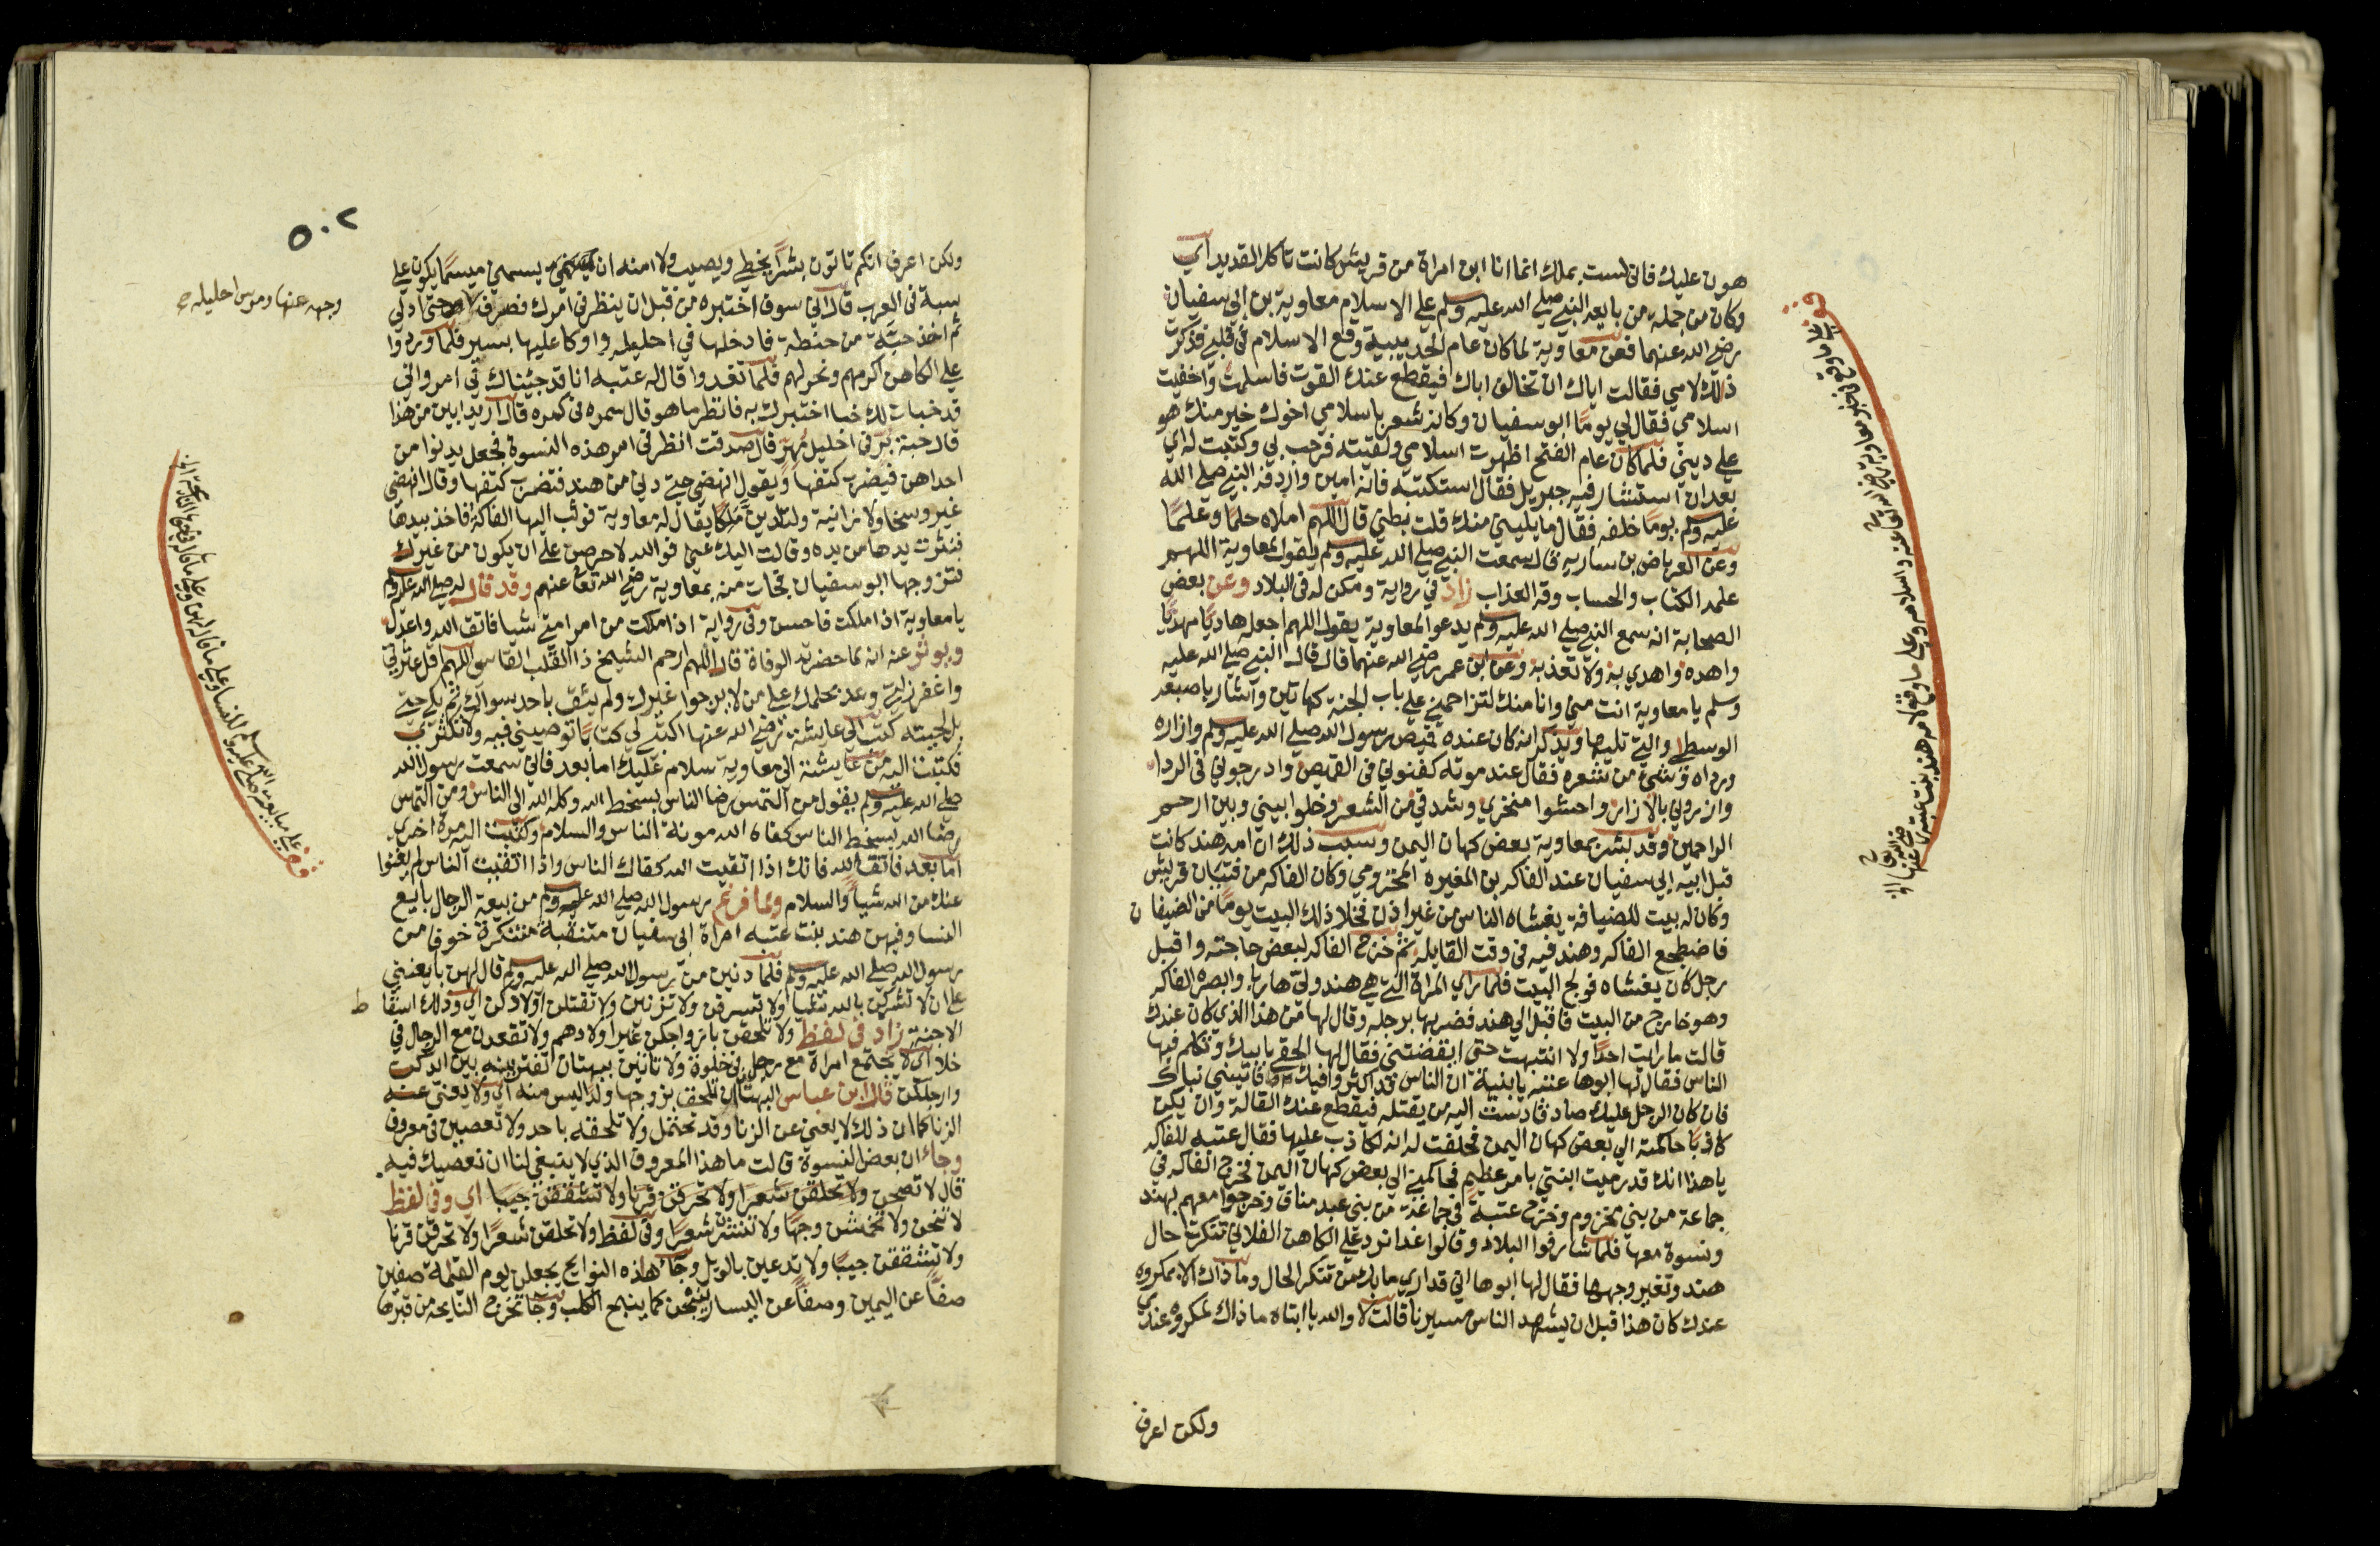 هون عليك فاني لست بملك انما انا ابن امراة من قريش كانت تاكل القديد اي
وكان من جملة من بايعه النبي صلى الله عليه وسلم على الاسلام معاوية بن ابي سفيان
رضي الله عنهما فعن معاوية لما كان عام الحديبية وقع الاسلام في قلبي فذكرت
ذلك لامي فقالت اياك ان تخالف اباك فيقطع عنك القوت فاسلمت واخفيت
اسلامي فقال لي يوما ابو سفيان وكانه شعر باسلامي اخوك خير منك هو
على ديني فلما كان عام الفتح اظهرت اسلامي ولقيته فرحب بي وكتبت له اي
بعد ان استشار فيه جبريل فقال استكتبه فانه امين واردفه النبي صلى الله
عليه وسلم يوما خلفه فقال ما يليني منك قلت بطني قال اللهم املاه حلما وعلما
وعن العرباض بن ساريه قال سمعت النبي صلى الله عليه وسلم يقول لمعاوية اللهم
علمه الكتاب والحساب وقه العذاب زاد في رواية ومكن له في البلاد وعن بعض
الصحابة انه سمع النبي صلى الله عليه وسلم يدعوا لمعاوية يقول اللهم اجعله هاديا مهديا
واهده واهدي به ولا تعذبه وعن ابن عمر رضي الله عنهما قال قال النبي صلى الله عليه
وسلم يا معاوية انت مني وانا منك لتزاحمني على باب الجنة كهاتين واشار باصبعه
الوسطى والتي تليها ويذكر انه كان عنده قميص رسول الله صلى الله عليه وسلم وازاره
ورداه وشيء من شعره فقال عند موته كفنوني في القميص وادرجوني في الردا
وازروني بالازار واحشوا منخري وشدقي من الشعر وخلوا بيني وبين ارحم
الراحمين وقد بشر بمعاوية بعض كهان اليمن وسبب ذلك ان امه هند كانت
قبل ابيه ابي سفيان عند الفاكه بن المغيره المخزومي وكان الفاكه من فتيان قريش
وكان له بيت للضيافة يغشاه الناس من غير اذن فخلا ذلك البيت يوما من الضيفان
فاضطجع الفاكه وهند فيه في وقت القايلة ثم خرج الفاكه لبعض حاجته واقبل
رجل كان يغشاه فولج البيت فلما راي المراة التي هي هند ولي هاربا وابصره الفاكه
وهو خارج من البيت فاقبل الي هند فضربها برجله وقال لها من هذا الذي كان عندك
قالت ما رايت احدا ولا انتبهت حتى ايقضتني فقال لها الحقي بابيك وتكلم فيها
الناس فقال لها ابوها عتبة يا بنية ان الناس قد اكثروا فيك فانبيني نباك
فان كان الرجل عليك صادقا دسست اليه من يقتله فيقطع عنك القالة وان يكن
كاذبا حاكمته الي بعض كهان اليمن فحلفت له انه لكاذب عليها فقال عتبه للفاكه
يا هذا انك قد رميت ابنتي بامر عظيم فحاكمني الي بعض كهان اليمن فخرج الفاكه في
جماعة من بني مخزوم وخرج عتبة في جماعة من بني عبد مناف وخرجوا معهم بهند
ونسوة معها فلما شارفوا البلاد وقالوا غدا نرد على الكاهن الفلاني تنكرت حال
هند وتغير وجهها فقال لها ابوها اني قد اري ما بك من تنكر الحال وما ذاك الا لمكروه
عندك كان هذا قبل ان يشهد الناس مسيرنا قالت لا والله يا ابتاه ما ذاك لمكروه عندي
ولكن اعرف
وعلي ما وقع لامه هند بنت عتبة
٥٠٢
ولكن اعرف انكم تاتون بشرا يخطي ويصيب ولا امنه ان يسمني ميسما يكون علي
سبة في العرب قال اني سوف اختبره من قبل ان ينظر في امرك فصفر لفرسه حتى ادلي
ثم اخذ حبة من حنطة فادخلها في احليله واوكا عليها بسير فلما وردوا
علي الكاهن اكرمهم ونحر لهم فلما تغدوا قال له عتبه انا قد جئناك في امر واني
قد خبات لك خبا اختبرك به فانظر ما هو قال سمره في كمره قال اريد ابين من هذا
قال حبة بر في احليل مهر قال صدقت انظر في امر هذه النسوة فجعل يدنوا من
احداهن فيضرب كتفها ويقول انهضي حتى دني من هند فضرب كتفها وقال انهضي
غير وسخا ولا زانية ولتلدين ملكا يقال له معاوية فوثب اليها الفاكه فاخذ بيدها
فنثرت يدها من يده وقالت اليك عني فوالله لاحرصن على ان يكون من غيرك
فتزوجها ابو سفيان فجات منه بمعاوية رضي الله تعالى عنهم وقد قال له صلى الله عليه وسلم
يا معاوية اذا ملكت فاحسن وفي رواية اذا ملكت من امر امتي شيا فاتق الله واعدل
ويوثر عنه انه لما حضرته الوفاة قال اللهم ارحم الشيخ ذا القلب القاسي اللهم اقل عثرتي
واغفر زلتي وعد بحلمك على من لا يرجوا غيرك ولم يثق باحد سواك ثم بكي حتى
بل لحيته كتب الي عايشة رضي الله عنها اكتبي لي كتابا توصيني فيه ولا تكثري
فكتبت اليه من عايشة الي معاوية سلام عليك اما بعد فاني سمعت رسول الله
صلى الله عليه وسلم يقول من التمس رضا الناس بسخط الله وكله الله الي الناس ومن التمس
رضا الله بسخط الناس كفاه الله مونة الناس والسلام وكتبت اليه مرة اخري
اما بعد فاتق الله فانك اذا اتقيت الله كفاك الناس واذا اتقيت الناس لم يغنوا
عنك من الله شيا والسلام ولما فرغ رسول الله صلى الله عليه وسلم من بيعة الرجال بايع
النسا وفيهن هند بنت عتبه امراة ابي سفيان متنقبة متنكرة خوفا من
رسول الله صلى الله عليه وسلم فلما دنين من رسول الله صلى الله عليه وسلم قال لهن بايعنني
علي ان لا تشركن بالله شيا ولا تسرقن ولا تزنين ولا تقتلن اولادكن اي وذلك اسقاط
الاجنة زاد في لفظ ولا تلحقن بازواجكن غير اولادهم ولا تقعدن مع الرجال في
خلا اي لا يجتمع امراة مع رجل في خلوة ولا تاتين ببهتان تفترينه بين ايديكن
وارجلكن قال ابن عباس البهتان ان تلحق بزوجها ولدا ليس منه اي ولا يغني عنه
الزنا كما ان ذلك لا يغني عن الزنا وقد تحتمل ولا تلحقه باحد ولا تعصين في معروف
وجا ان بعض النسوة قالت ما هذا المعروف الذي لا ينبغي لنا ان نعصيك فيه
قال لا تصحن ولا تحلقن شعرا ولا تحرقن قرنا ولا تشققن جيبا اي وفي لفظ
لا تنحن ولا تخمشن وجها ولا تنشرن شعرا وفي لفظ ولا تحلقن شعرا ولا تحرقن قرنا
ولا تشققن جيبا ولا تدعين بالويل وجا هذه النوايح يجعلن يوم القيمة صفين
صفا عن اليمين وصفا عن اليسار ينبحن كما ينبح الكلب وجا تخرج النايحة من قبرها